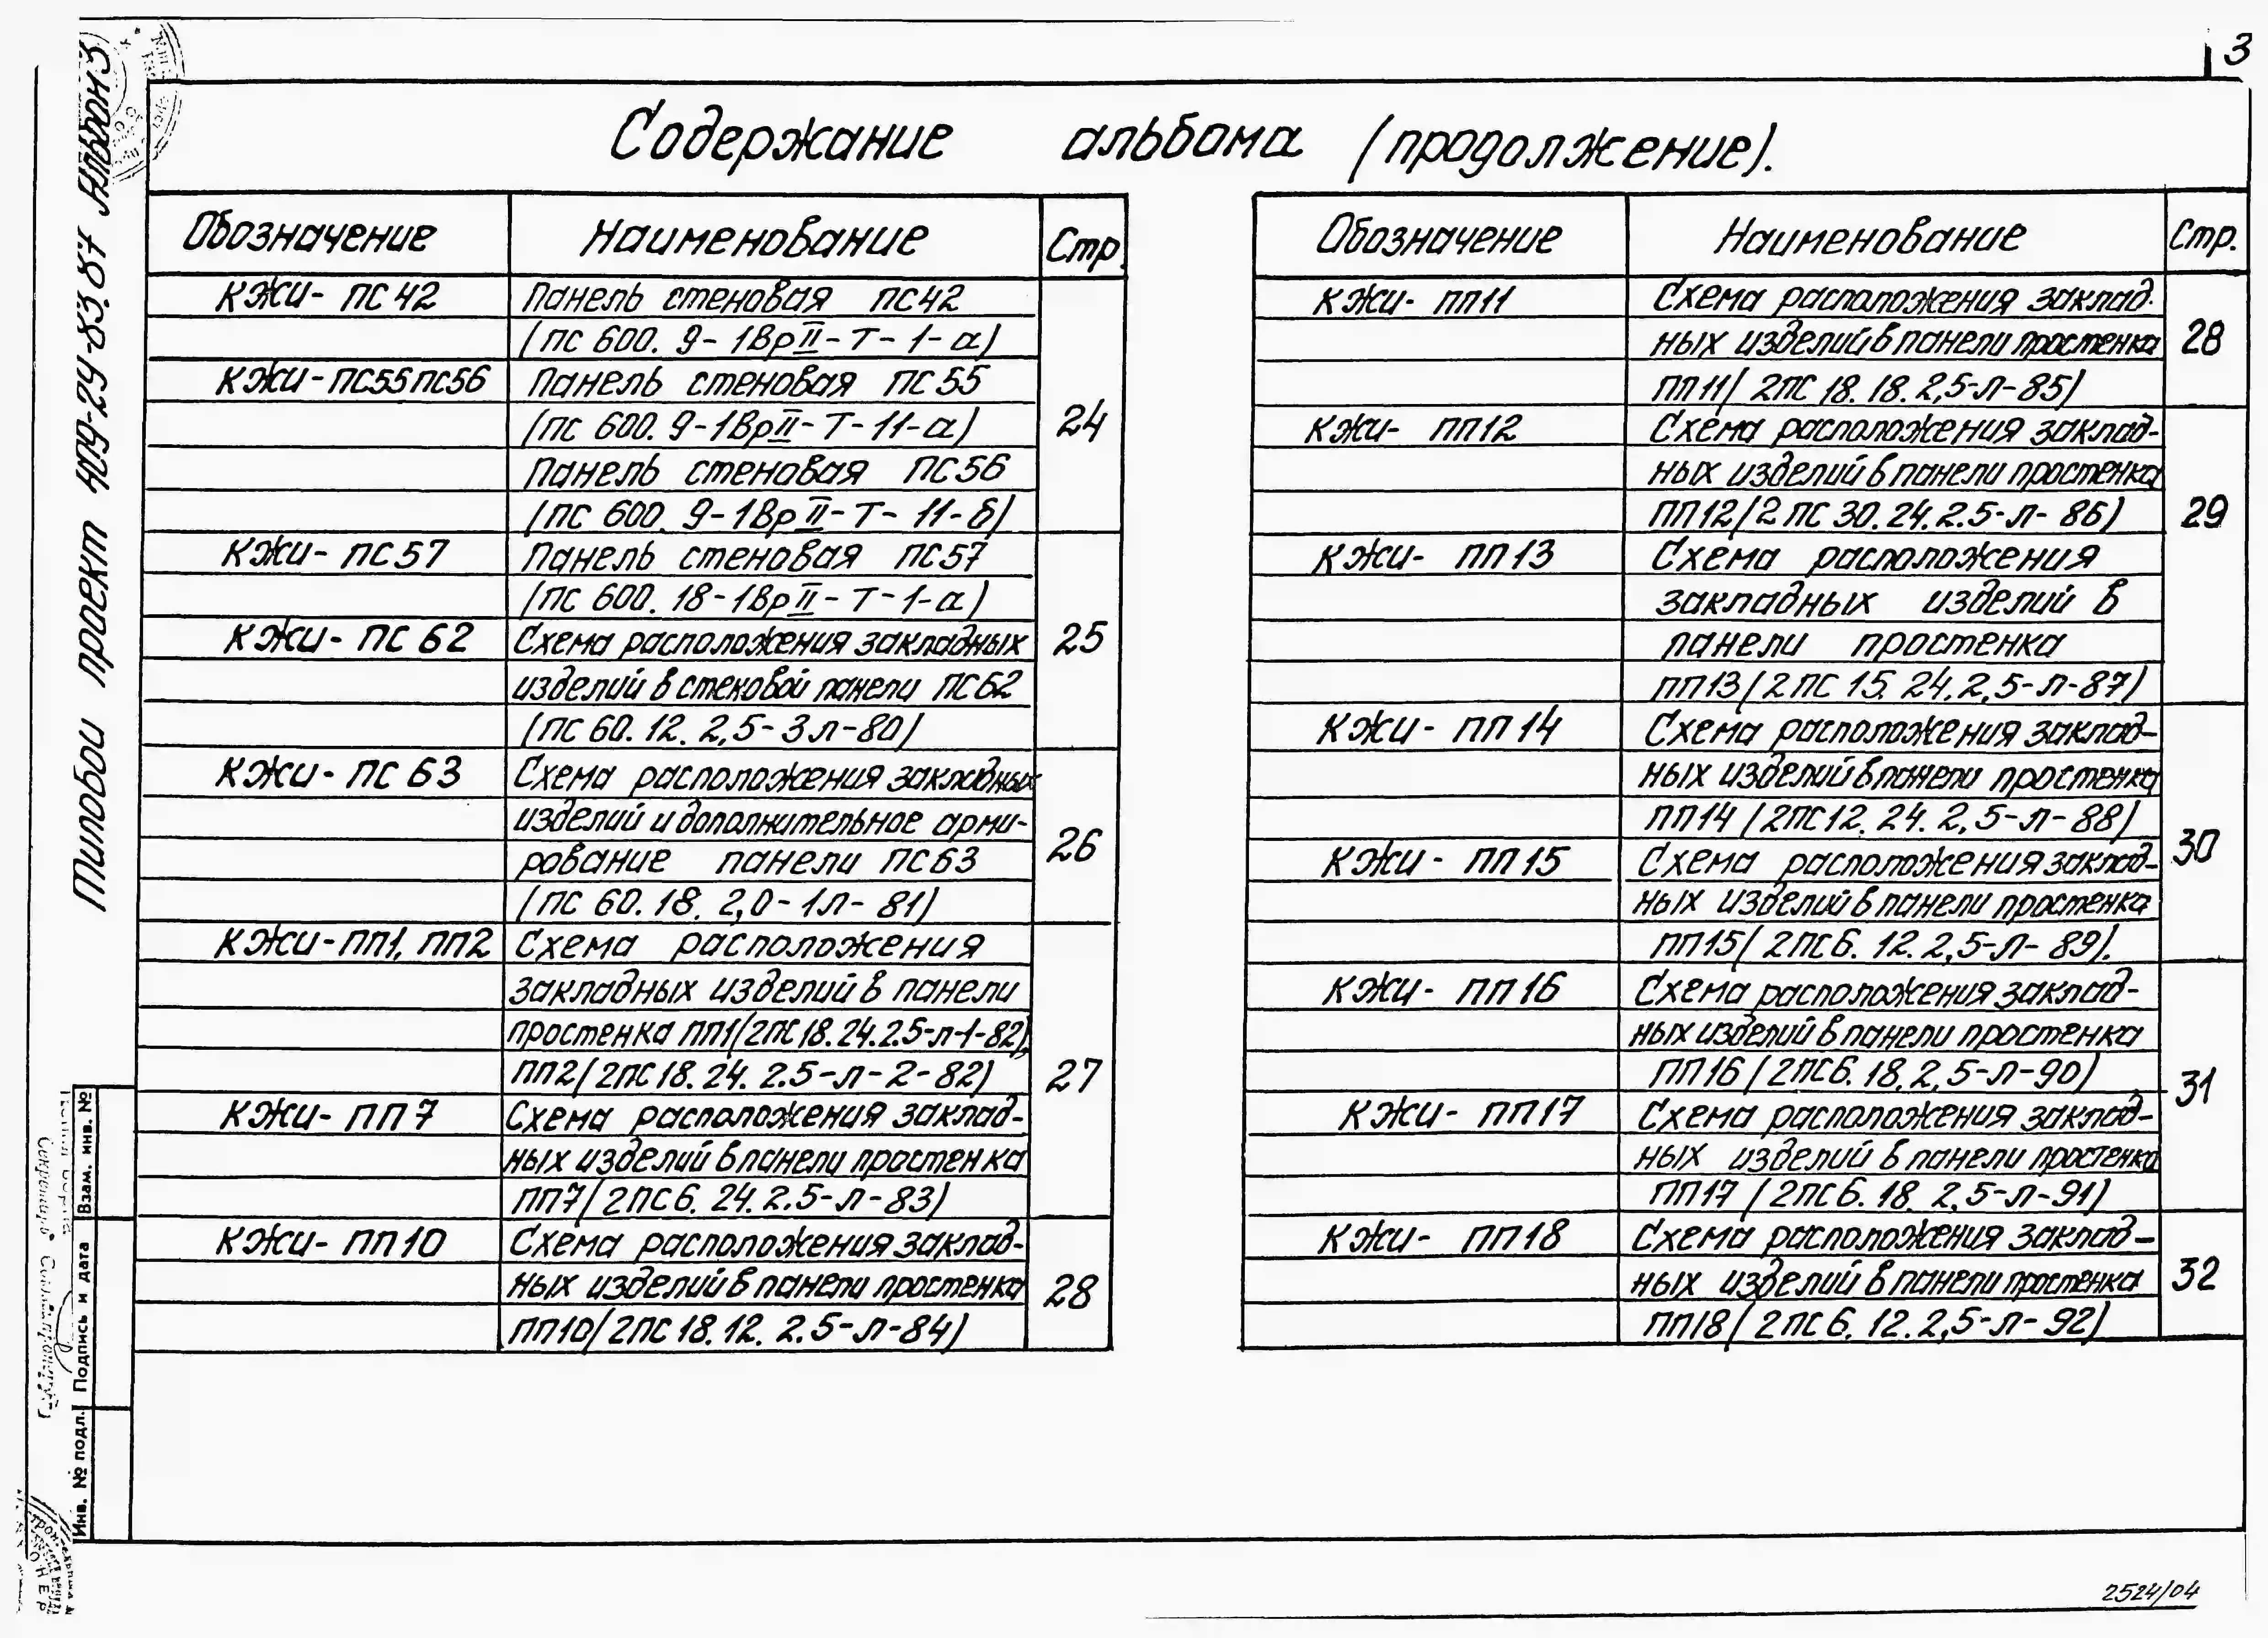 3
Содержание альбома (продолжение).
Обозначение Наименование Стр.
КЖИ- ПС 42 Панель стеновая ПС42
(ПС 600. 9-1ВрII-Т-1-а)
КЖИ-ПС55ПС56 Панель стеновая ПС 55
(ПС 600. 9-1ВрII-Т-11-а)
24
Панель стеновая ПС56
(ПС 600. 9-1ВрII-Т-11-б)
КЖИ- ПС57 Панель стеновая ПС57
(ПС 600. 18-1ВрII-Т-1-а)
КЖИ- ПС 62 Схема расположения закладных
25
изделий в стеновой панели ПС62
(ПС 60. 12. 2,5-3л-80)
КЖИ- ПС 63 Схема расположения закладных
изделий и дополнительное арми-
26
рование панели ПС63
(ПС 60. 18. 2,0-1л-81)
КЖИ-ПП1, ПП2 Схема расположения
закладных изделий в панели
простенка ПП1(2ПС 18. 24. 2.5-л-1-82),
ПП2(2ПС 18. 24. 2.5-л-2-82)
27
КЖИ- ПП7 Схема расположения заклад-
ных изделий в панели простенка
ПП7(2ПС 6. 24. 2.5-л-83)
КЖИ- ПП10 Схема расположения заклад-
ных изделий в панели простенка
28
ПП10(2ПС 18. 12. 2.5-л-84)
Обозначение Наименование Стр.
КЖИ- ПП11 Схема расположения заклад-
ных изделий в панели простенка
28
ПП11(2ПС 18. 18. 2,5-л-85)
КЖИ- ПП12 Схема расположения заклад-
ных изделий в панели простенка
ПП12(2ПС 30. 24. 2.5-л-86)
29
КЖИ- ПП13 Схема расположения
закладных изделий в
панели простенка
ПП13(2ПС 15. 24. 2,5-л-87)
КЖИ- ПП14 Схема расположения заклад-
ных изделий в панели простенка
ПП14 (2ПС12. 24. 2,5-л-88)
30
КЖИ- ПП15 Схема расположения заклад-
ных изделий в панели простенка
ПП15(2ПС6. 12. 2,5-л-89).
КЖИ- ПП16 Схема расположения заклад-
ных изделий в панели простенка
ПП16(2ПС6. 18. 2,5-л-90)
31
КЖИ- ПП17 Схема расположения заклад-
ных изделий в панели простенка
ПП17 (2ПС6. 18. 2,5-л-91)
КЖИ- ПП18 Схема расположения заклад-
ных изделий в панели простенка
32
ПП18(2ПС6. 12. 2,5-л-92)
Типовой проект 409-24-83.87 Альбом 3
Взам. инв. №
Подпись и дата
Инв. № подл.
2524/04